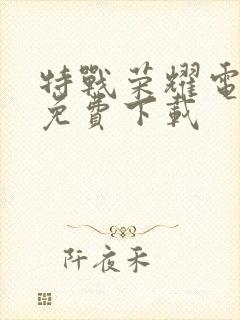 特戰荣耀電
免費下載
阡夜禾